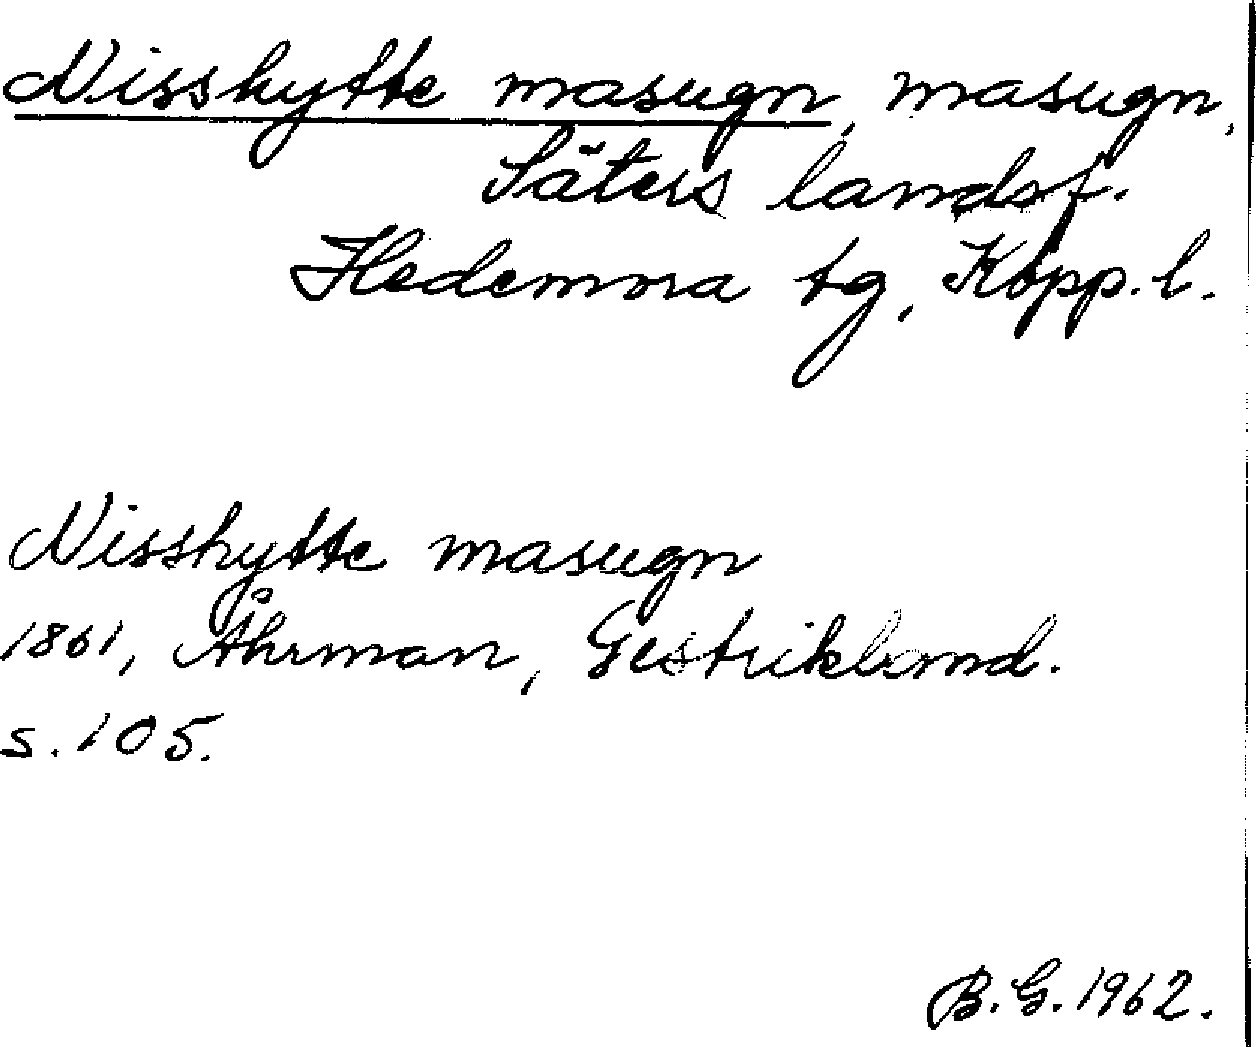 Nisshytte masugn, masugn,
Säters landsf.
Hedemora tg, Kopp. l.
Nisshytte masugn
1861, Åhrman, Gestrikland.
s. 105.
B. G. 1962.